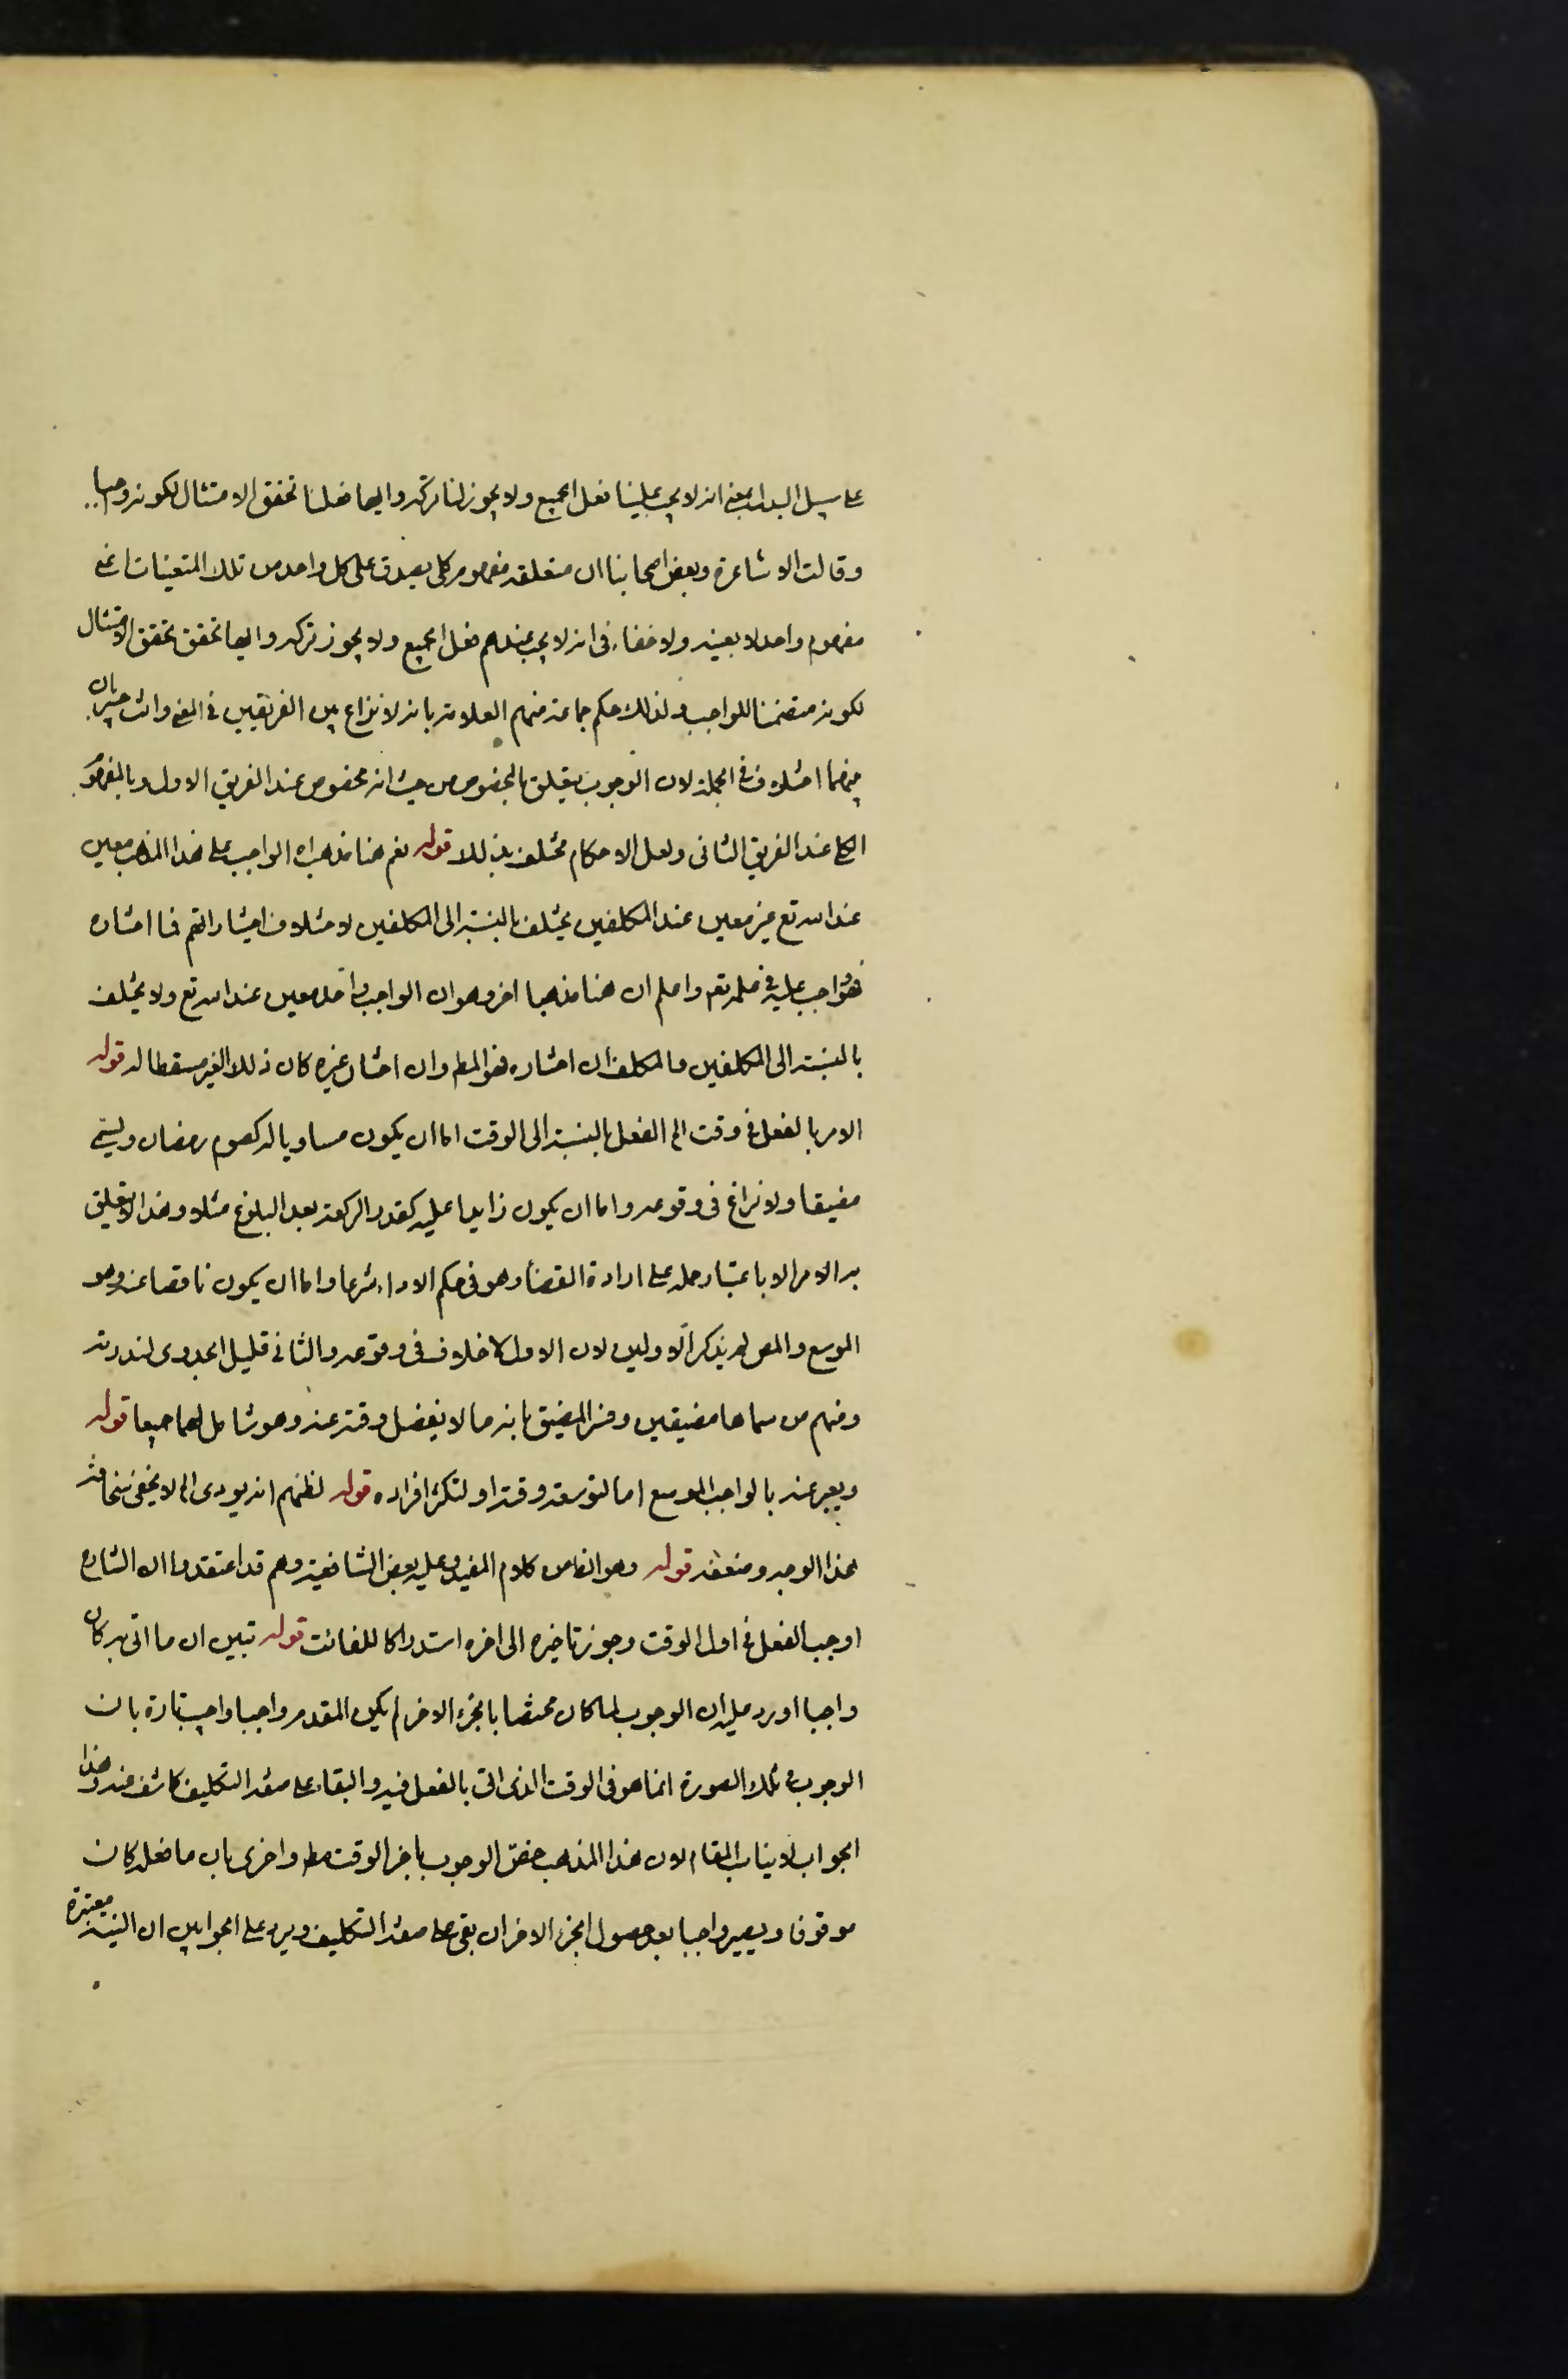 على سبيل البدل بمعنى انه لا يجب علينا فعل الجميع ولا يجوز لنا تركه وايها فعلنا تحقق الامتثال لكونه واجبا
وقالت الاشاعرة وبعض اصحابنا ان متعلقه مفهوم كلى يصدق على كل واحد من تلك المتعينات اعنى
مفهوم واحد لا بعينه ولا خفاء فى انه لا يجب عندهم فعل الجميع ولا يجوز تركه وايها تحقق تحقق الامتثال
لكونه متضمنا للواجب ولذلك حكم جماعة منهم العلامة بانه لا نزاع بين الفريقين فى المعنى وانت خبير بان
بينهما اختلاف فى الجملة لان الوجوب يتعلق بالخصوص من حيث انه مخصوص عند الفريق الاول وبالمفهوم
الكلى عند الفريق الثانى ولعل الاحكام مختلفة بذلك قوله نعم هنا مذهب اه الواجب على هذا المذهب معين
عند الله تع غير معين عند المكلفين يختلف بالنسبة الى المكلفين لاختلاف اختياراتهم فما اختاره
فهو واجب عليه فى علمه تع واعلم ان هنا مذهبا اخر وهو ان الواجب واحد معين عند الله تع ولا يختلف
بالنسبة الى المكلفين والمكلف ان اختاره فهو المط وان اختار غيره كان ذلك الغير مسقطا له قوله
الامر بالفعل فى وقت الخ الفعل بالنسبة الى الوقت اما ان يكون مساويا له كصوم رمضان ويسمى
مضيقا ولا نزاع فى وقوعه واما ان يكون زايدا عليه كقدر الركعة بعد البلوغ مثلا وهذا لا يتعلق
به الامر الا باعتبار حمله على ارادة القضاء وهو فى حكم الاداء شرعا واما ان يكون ناقصا عنه وهو
الموسع والمص لم يذكر الاولين لان الاول لا خلاف فى وقوعه والثانى قليل الجدوى لندرته
ومنهم من سماهما مضيقين وفسر المضيق بانه ما لا يفضل وقته عنه وهو شامل لهما جميعا قوله
ويعبر عنه بالواجب الموسع اما لتوسعة وقته او لتكثر افراده قوله لظنهم انه يودى الخ لا يخفى سخافة
هذا الوجه وضعفه قوله وهو الظ من كلام المفيد وعليه بعض الشافعية وهم قد اعتقدوا ان الشارع
اوجب الفعل فى اول الوقت وجوز تاخيره الى اخره استدراكا للفائت قوله تبين ان ما اتى به كان
واجبا اورد عليه ان الوجوب لما كان مختصا بالجزء الاخر لم يكن المقدم واجبا واجيب تارة بان
الوجوب فى تلك الصورة انما هو فى الوقت الذى اتى بالفعل فيه والبقاء على صفة التكليف كاشف عنه وهذا
الجواب لا يناسب المقام لان هذا المذهب خص الوجوب باخر الوقت مط واخرى بان ما فعله كان
موقوفا ويصير واجبا بعد حصول الجزء الاخر ان بقى على صفة التكليف ويرد على الجوابين ان النية معتبرة